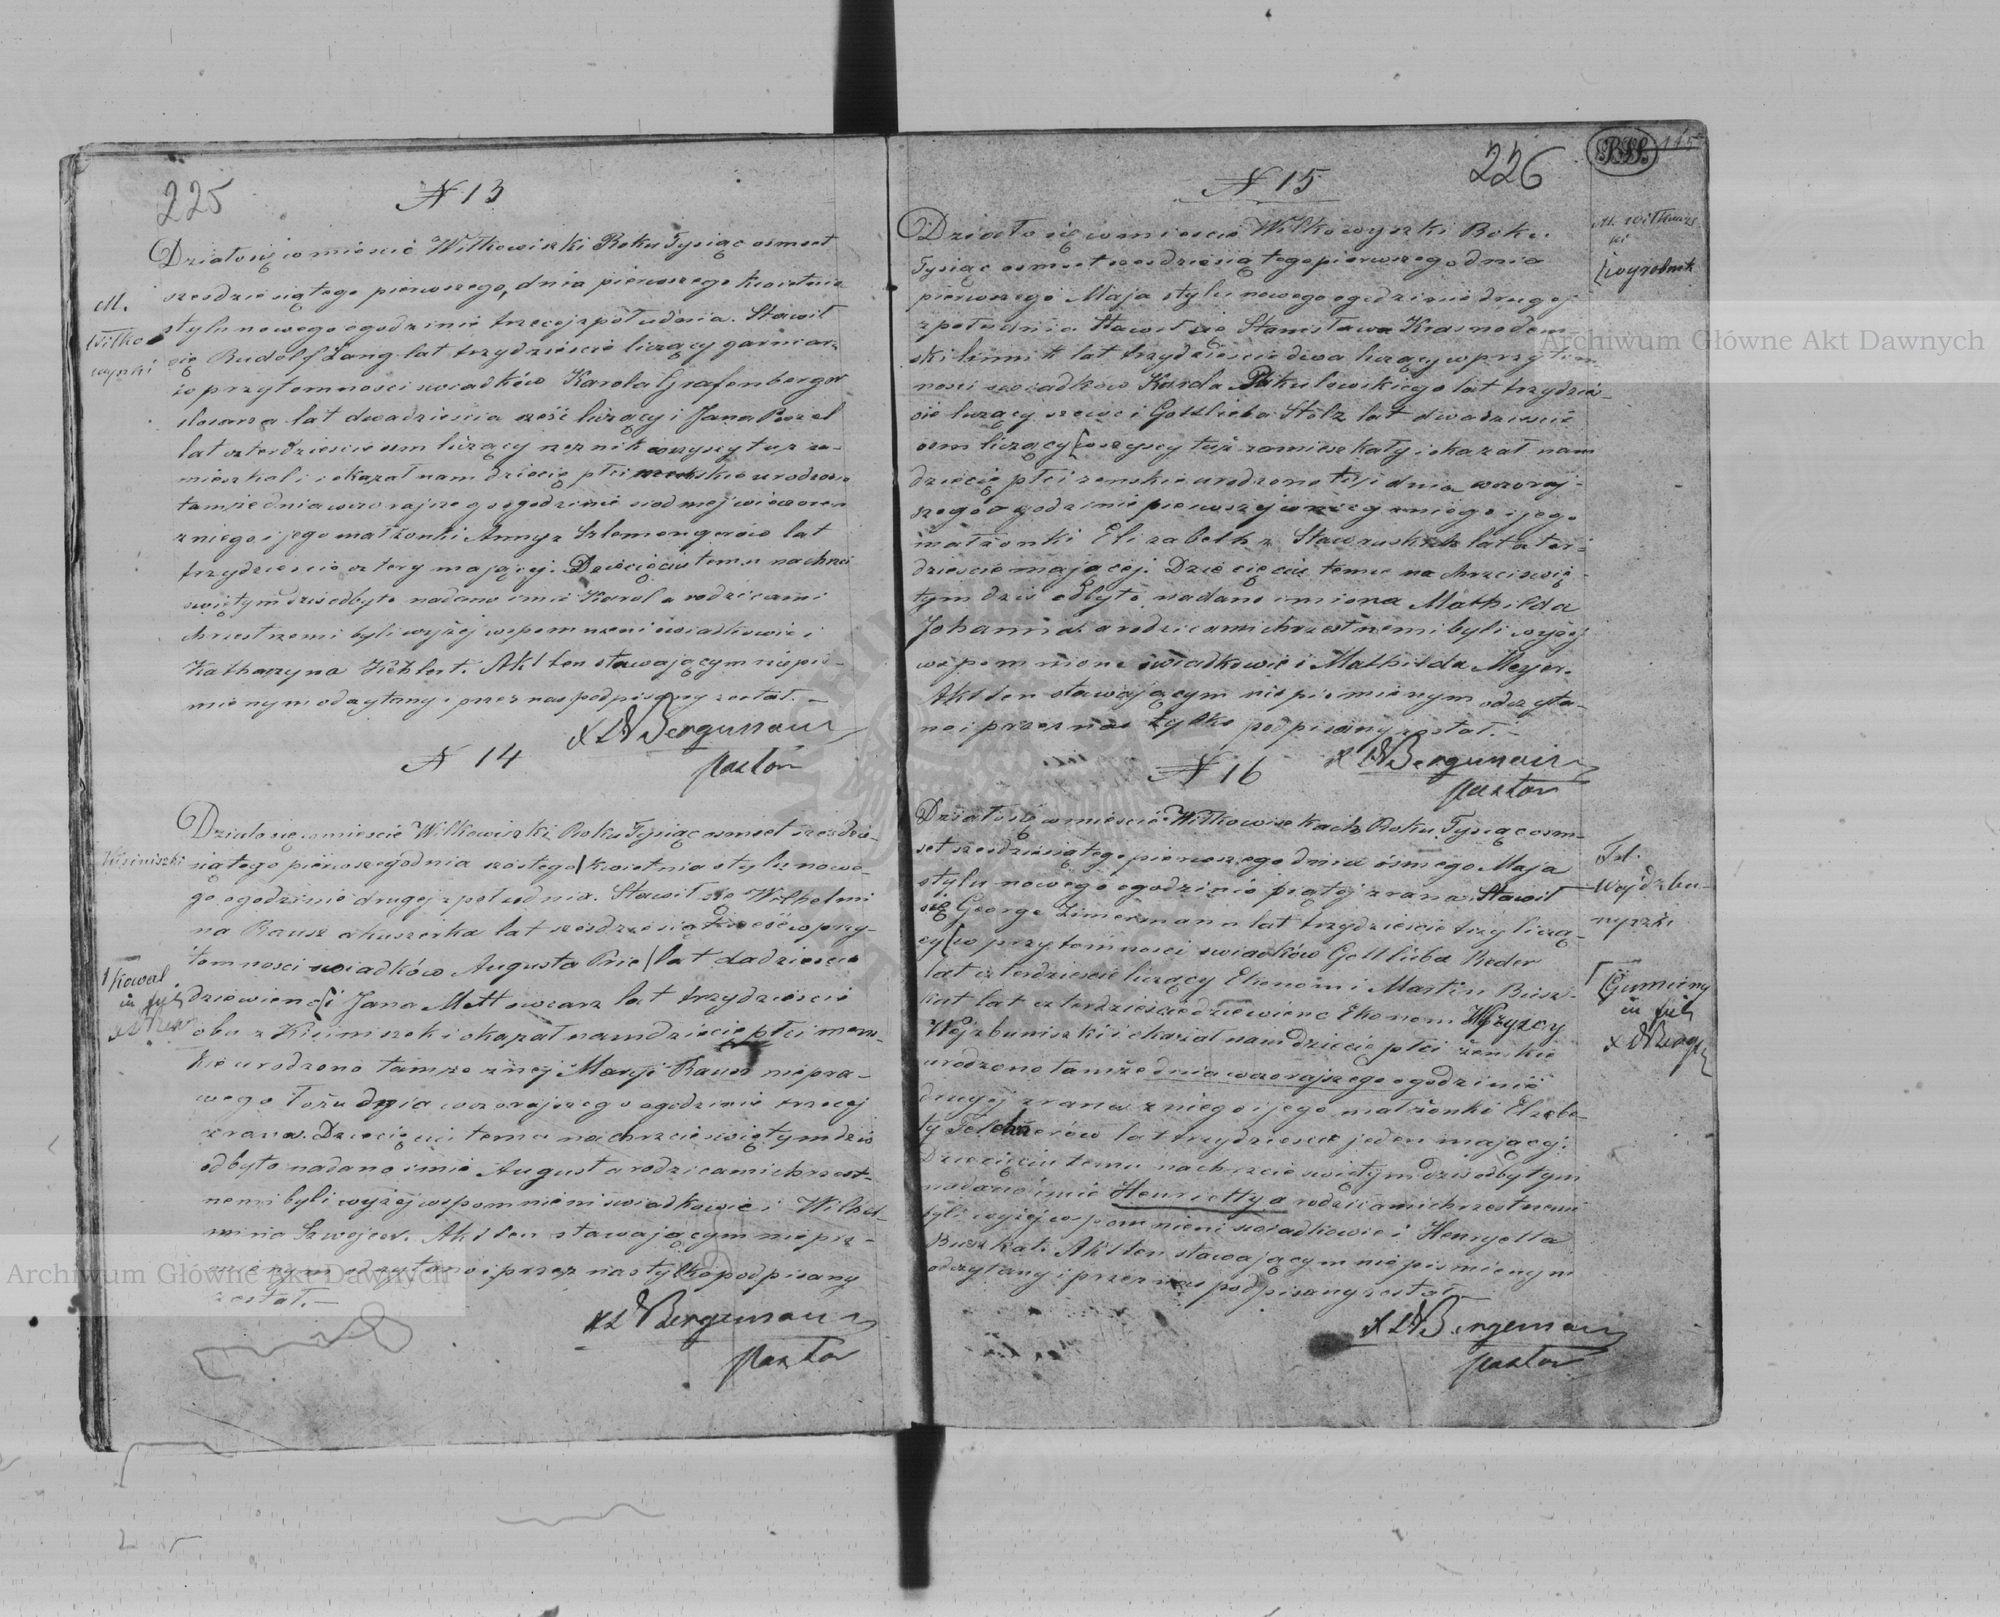 225
N 13
M. Wiłkowyszki
Działo się w mieście Wiłkowiszki Roku Tysiąc osmset
szesdziesiątego pierwszego, dnia pierwszego kwietnia
stylu nowego ogodzinie trzeciej z południa. Stawił
się Rudolf Lang lat trzydzieście liczący garncarz
w przytomności swiadków Karola Grafenberger
slosarza lat dwadzieścia sześć liczący i Jana Pozel
lat czterdzieście osm liczący rzeznik wszyscy tuz za-
mieszkali i okazał nam dziecię płci męzskie urodzone
tamże dnia wczorajszego ogodzinie siodmej wieczorem
z niego i jego małżonki Anny z Szlemengerów lat
trzydzieście cztery mającej. Dziecięciu temu na chrzcie
świętym dziś odbyto nadano imie Karol a rodzicami
chrzestnemi byli wyżej wspomnieni świadkowie i
Katharyna Kehlert. Akt ten stawającym niepis-
miennym odczytany i przez nas podpisany został.
X LW Bergemann
pastor
N 14
Kisiniszki
Działo się w mieście Wiłkowiszki Roku Tysiąc osmset szesdzie-
siątego pierwszego dnia szóstego kwietnia stylu nowe-
go ogodzinie drugiej z południa. Stawił się Wilhelmi
na Rausz akuszerka lat szesdziesiąt sześć w przy-
tomności swiadków Augusta Prie lat dadzieście
dziewienć i Jana Mett owcarz lat trzydzieście
oba z Kisiniszek i okazał nam dziecię płci męzs-
kie urodzone tamże z niej Maryi Rausz niepra-
wego łożu dnia wczorajszego ogodzinie trzeciej
zrana. Dziecięciu temu na chrzcie świętym dziś
odbyto nadano imie August a rodzicami chrzest-
nemi byli wyżej wspomnieni swiadkowie i Wilhel-
mina Szwejcer. Akt ten stawającym niepis-
miennym odczytano i przez nas tylko podpisany
został.
kowal
X LW Bergemann
pastor
226
115
N 15
M. Wiłkowyszki
wyrobnik
Działo się w mieście Wiłkowyszki Roku
Tysiąc osmset szesdziesiątego pierwszego dnia
pierwszego Maja stylu nowego ogodzinie drugej
z południa. Stawił się Stanisława Krasnodem-
ski lat trzydzieście dwa liczący w przytom-
nosci swiadków Karola lat trzydzie-
ście liczący szewc i Gottlieba Stölz lat dwadzieście
osm liczący wszyscy tuż zamieszkały i okazał nam
dziecię płci zenskie urodzone tej dnia wczoraj-
szego ogodzinie pierwszej w nocy z niego i jego
małżonki Elizabeth z Stawruskich lat czter-
dzieście mającej. Dziecięciu temu na chrzci świę-
tym dziś odbyto nadano imiona Mathilda
Johanna a rodzicami chrzestnemi byli wyżej
wspomnione świadkowie i Mathilda Meyer.
Akt ten stawającym niepismienym odczyta-
no i przez nas tylko podpisany został.
X LW Bergemann
pastor
N 16
Fol. Wojdzbunyszki
Działo się w mieście Wiłkowiszkach Roku Tysiąc osm-
set szesdziesiątego pierwszego dnia ósmego Maja
stylu nowego ogodzinie piątej zrana. Stawił
się George Zimermann lat trzydzieście trzy liczą-
cy w przytomnosci swiadków Gottlieba Reder
lat czterdzieście liczący Ekonom i Martin Busz-
kat lat czterdzieście dziewienc Ekonom Wszyscy
Wojzbuniszki i okazał nam dziecię płci żenskie
urodzone tamże dnia wczorajszego ogodzinie
drugej zrana z niego i jego małżonki Elzbe-
ty lat trzydzieście jeden mającej.
Dziecięciu temu na chrzcie świętym dziś odbytym
nadano imie Henrietty a rodzicami chrzestnemi
byli wyżej wspomnieni swiadkowie i Henryetta
Buszkat. Akt ten stawającym niepismienym
odczytany i przez nas podpisany został.
Gumieny
X LW Bergemann
pastor
Archiwum Główne Akt Dawnych
Archiwum Główne Akt Dawnych